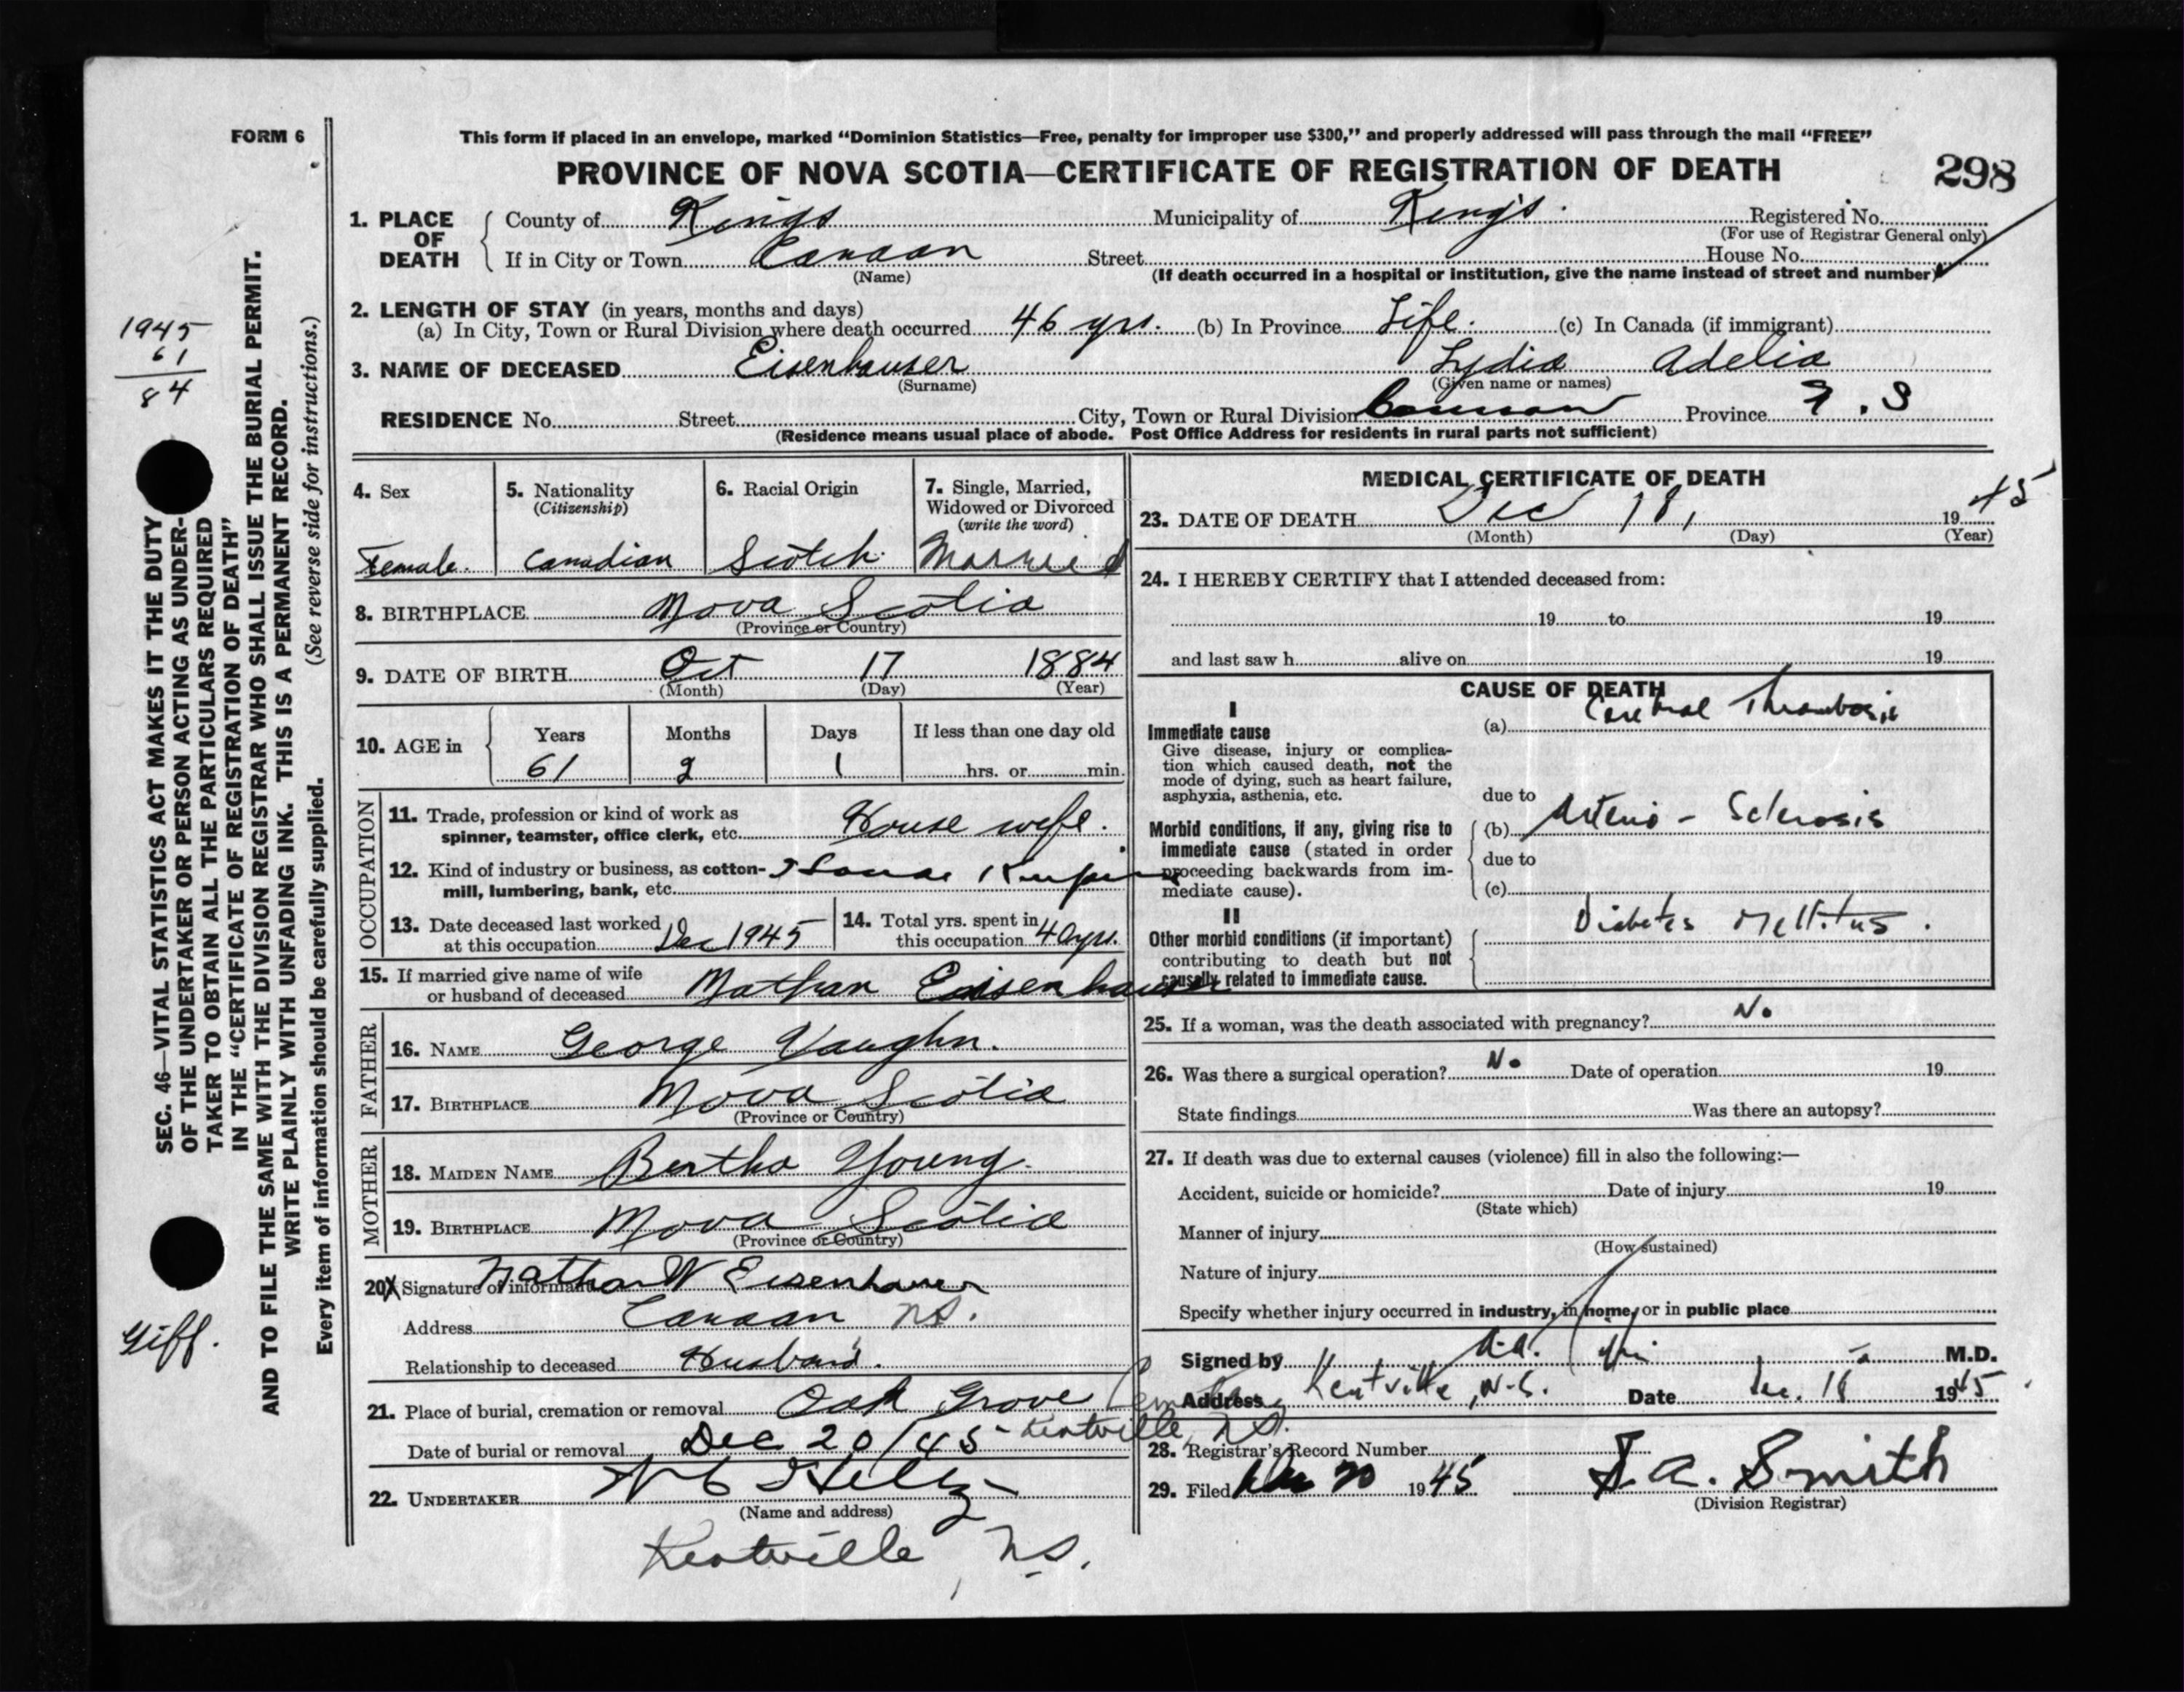 FORM 6
This form if placed in an envelope, marked "Dominion Statistics—Free, penalty for improper use $300," and properly addressed will pass through the mail "FREE"
PROVINCE OF NOVA SCOTIA—CERTIFICATE OF REGISTRATION OF DEATH
298
1. PLACE OF DEATH
County of Kings Municipality of King's. Registered No.
(For use of Registrar General only)
If in City or Town Canaan Street House No.
(Name) (If death occurred in a hospital or institution, give the name instead of street and number)
2. LENGTH OF STAY (in years, months and days)
(a) In City, Town or Rural Division where death occurred 46 yrs. (b) In Province Life. (c) In Canada (if immigrant)
3. NAME OF DECEASED Eisenhauser Lydia Adelia
(Surname) (Given name or names)
RESIDENCE No. Street City, Town or Rural Division Canaan Province N.S
(Residence means usual place of abode. Post Office Address for residents in rural parts not sufficient)
1945
61
84
SEC. 46—VITAL STATISTICS ACT MAKES IT THE DUTY
OF THE UNDERTAKER OR PERSON ACTING AS UNDER-
TAKER TO OBTAIN ALL THE PARTICULARS REQUIRED
IN THE "CERTIFICATE OF REGISTRATION OF DEATH"
AND TO FILE THE SAME WITH THE DIVISION REGISTRAR WHO SHALL ISSUE THE BURIAL PERMIT.
WRITE PLAINLY WITH UNFADING INK. THIS IS A PERMANENT RECORD.
Every item of information should be carefully supplied. (See reverse side for instructions.)
4. Sex
Female.
5. Nationality
(Citizenship)
Canadian
6. Racial Origin
Scotch.
7. Single, Married,
Widowed or Divorced
(write the word)
Married
8. BIRTHPLACE Nova Scotia
(Province or Country)
9. DATE OF BIRTH Oct 17 1884
(Month) (Day) (Year)
10. AGE in
Years Months Days If less than one day old
61 2 1 hrs. or min.
OCCUPATION
11. Trade, profession or kind of work as
spinner, teamster, office clerk, etc. House wife.
12. Kind of industry or business, as cotton-
mill, lumbering, bank, etc. House Keeping
13. Date deceased last worked
at this occupation Dec 1945
14. Total yrs. spent in
this occupation 40 yrs.
15. If married give name of wife
or husband of deceased Nathan Eisenhauser
FATHER
16. NAME George Vaughn.
17. BIRTHPLACE Nova Scotia
(Province or Country)
MOTHER
18. MAIDEN NAME Bertha Young.
19. BIRTHPLACE Nova Scotia
(Province or Country)
20. X Signature of informant Nathan W Eisenhauer
Address Canaan NS.
Relationship to deceased Husband.
21. Place of burial, cremation or removal Oak Grove Cemetery
Date of burial or removal Dec 20/45 - Kentville, NS.
22. UNDERTAKER
(Name and address)
Kentville, NS.
MEDICAL CERTIFICATE OF DEATH
23. DATE OF DEATH Dec 18, 1945
(Month) (Day) (Year)
24. I HEREBY CERTIFY that I attended deceased from:
19 to 19
and last saw h alive on 19
CAUSE OF DEATH
I
Immediate cause
Give disease, injury or complica-
tion which caused death, not the
mode of dying, such as heart failure,
asphyxia, asthenia, etc.
(a) Cerebral Thrombosis
due to
Morbid conditions, if any, giving rise to
immediate cause (stated in order
proceeding backwards from im-
mediate cause).
(b) Arterio - Sclerosis
due to
(c)
II
Other morbid conditions (if important)
contributing to death but not
causally related to immediate cause.
Diabetes Mellitus.
25. If a woman, was the death associated with pregnancy? No
26. Was there a surgical operation? No Date of operation 19
State findings Was there an autopsy?
27. If death was due to external causes (violence) fill in also the following:—
Accident, suicide or homicide? Date of injury 19
(State which)
Manner of injury
(How sustained)
Nature of injury
Specify whether injury occurred in industry, in home, or in public place
Signed by M.D.
Address Kentville, N.S. Date Dec. 18 1945
28. Registrar's Record Number
29. Filed Dec 20 1945 A. Smith
(Division Registrar)